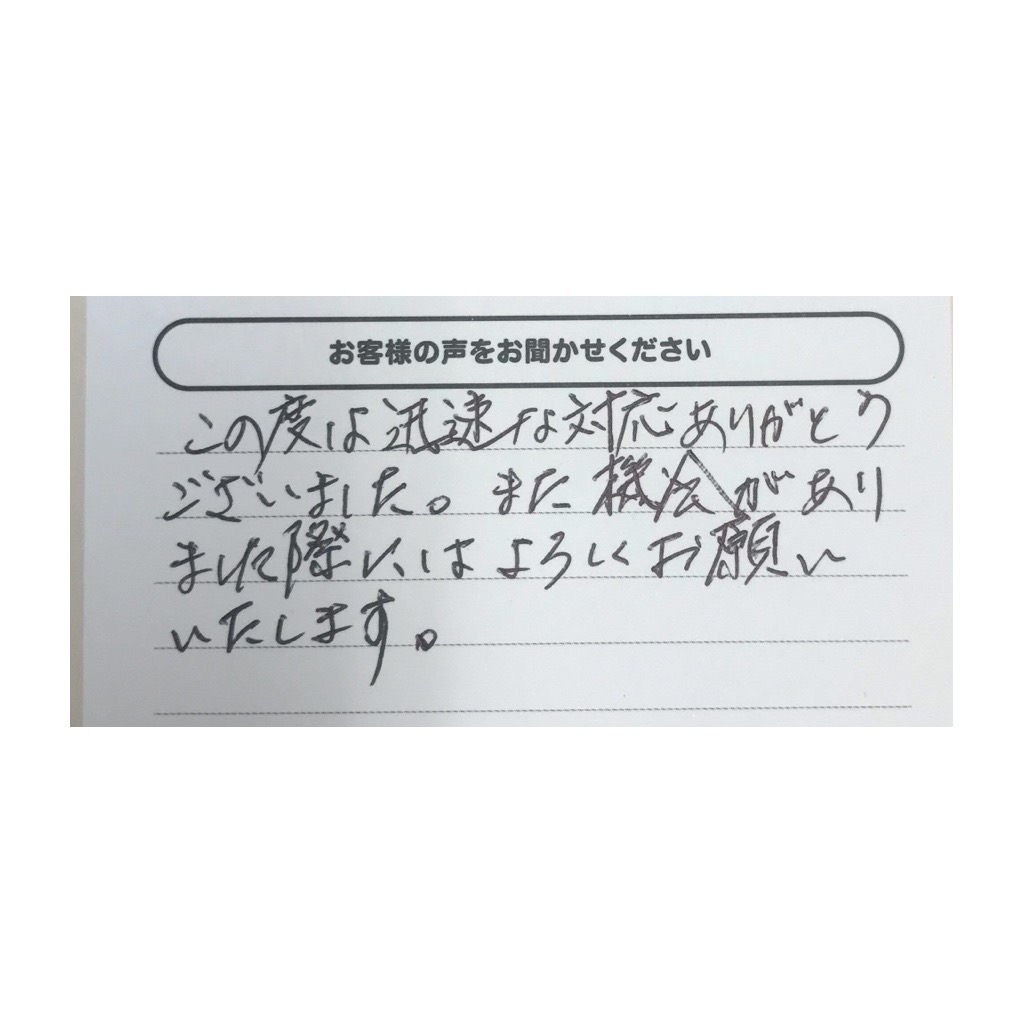 お客様の声をお聞かせください
この度は迅速な対応ありがとう
ございました。また機会があり
ました際にはよろしくお願い
いたします。